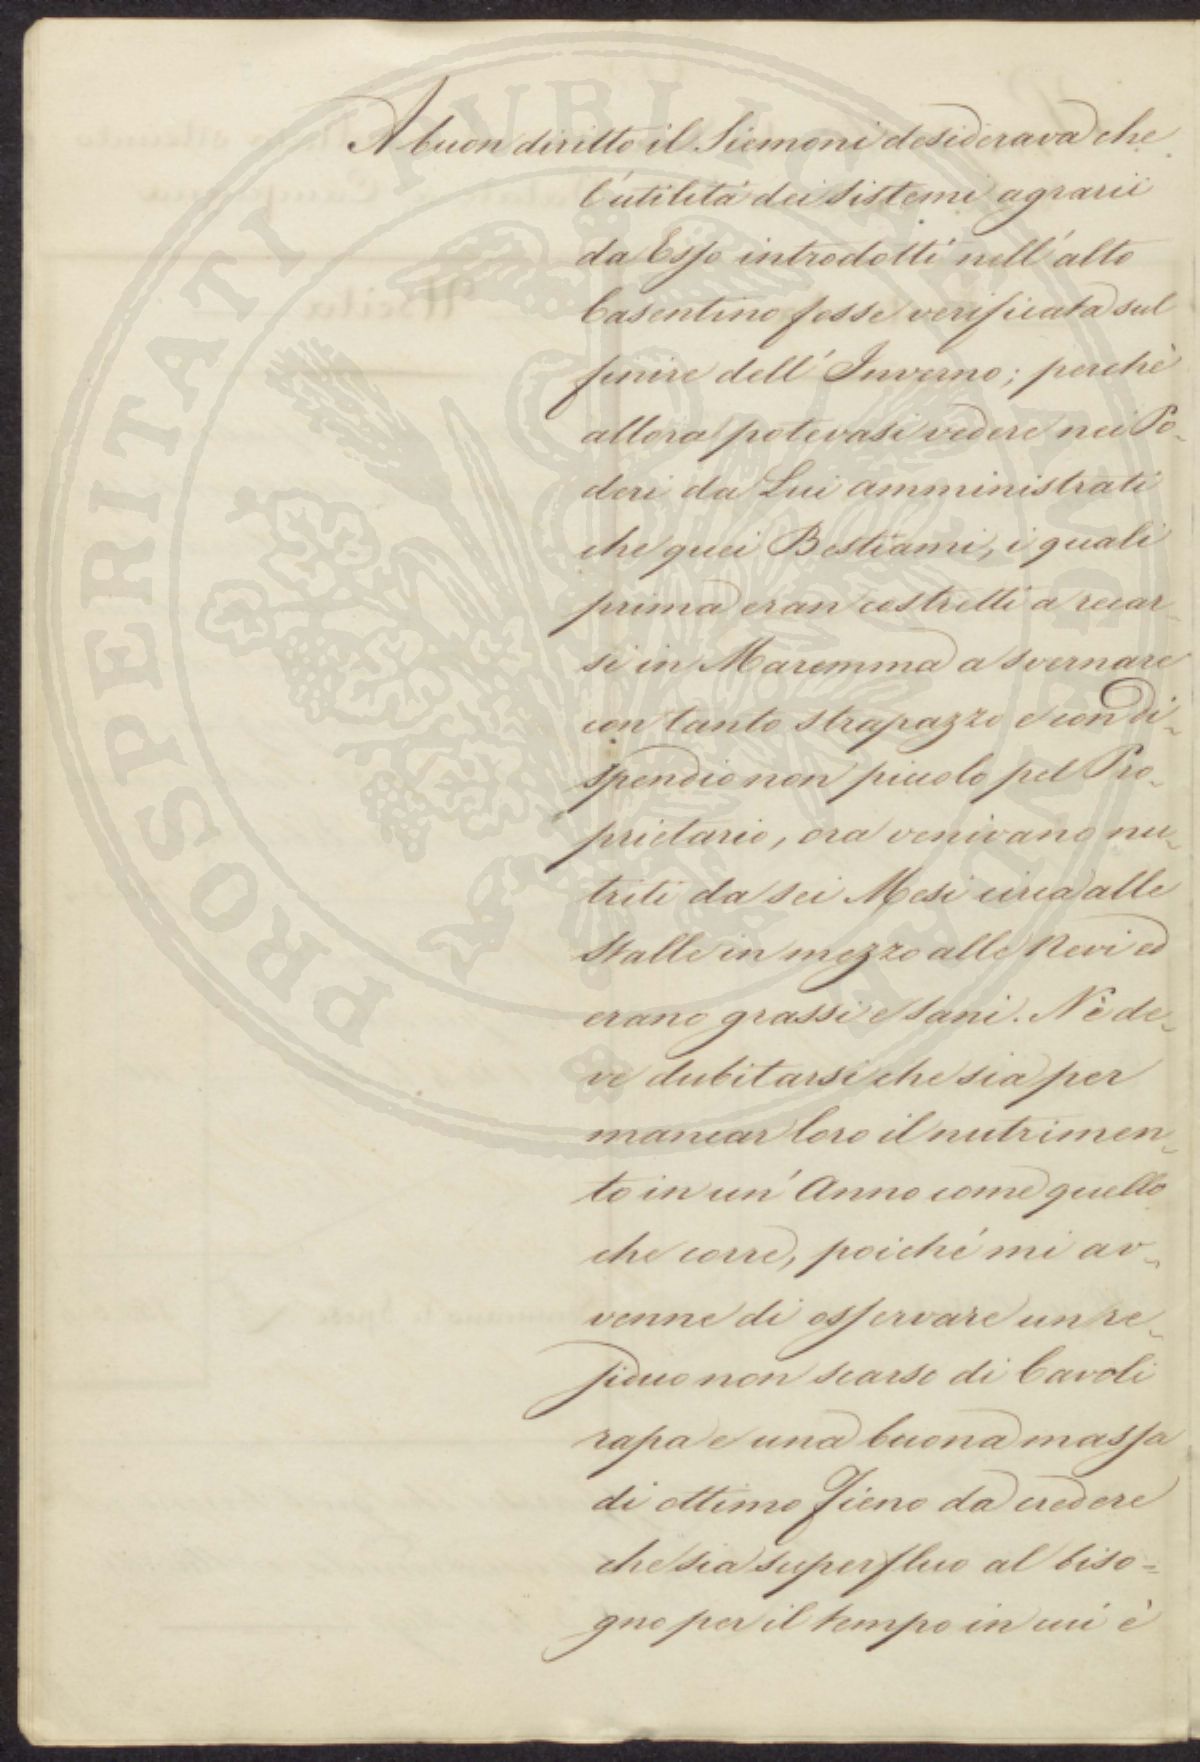 A buon diritto il Siemoni desiderava che
l'utilità dei sistemi agrarii
da Esso introdotti nell'alto
Casentino fosse verificata sul
finire dell'Inverno; perchè
allora potevasi vedere nei Po-
deri da Lui amministrati
che quei Bestiami, i quali
prima eran costretti a recar-
si in Maremma a svernare
con tanto strapazzo e con di-
spendio non piccolo pel Pro-
prietario, ora venivano nu-
triti da sei Mesi circa alle
Stalle in mezzo alle Nevi ed
erano grassi e sani. Nè de-
ve dubitarsi che sia per
mancar loro il nutrimen-
to in un'Anno come quello
che corre, poiché mi av-
venne di osservare un re-
siduo non scarso di Cavoli
rapa e una buona massa
di ottimo Fieno da credere
che sia superfluo al biso-
gno per il tempo in cui è
PROSPERITATI PUBLICAE AUGENDAE